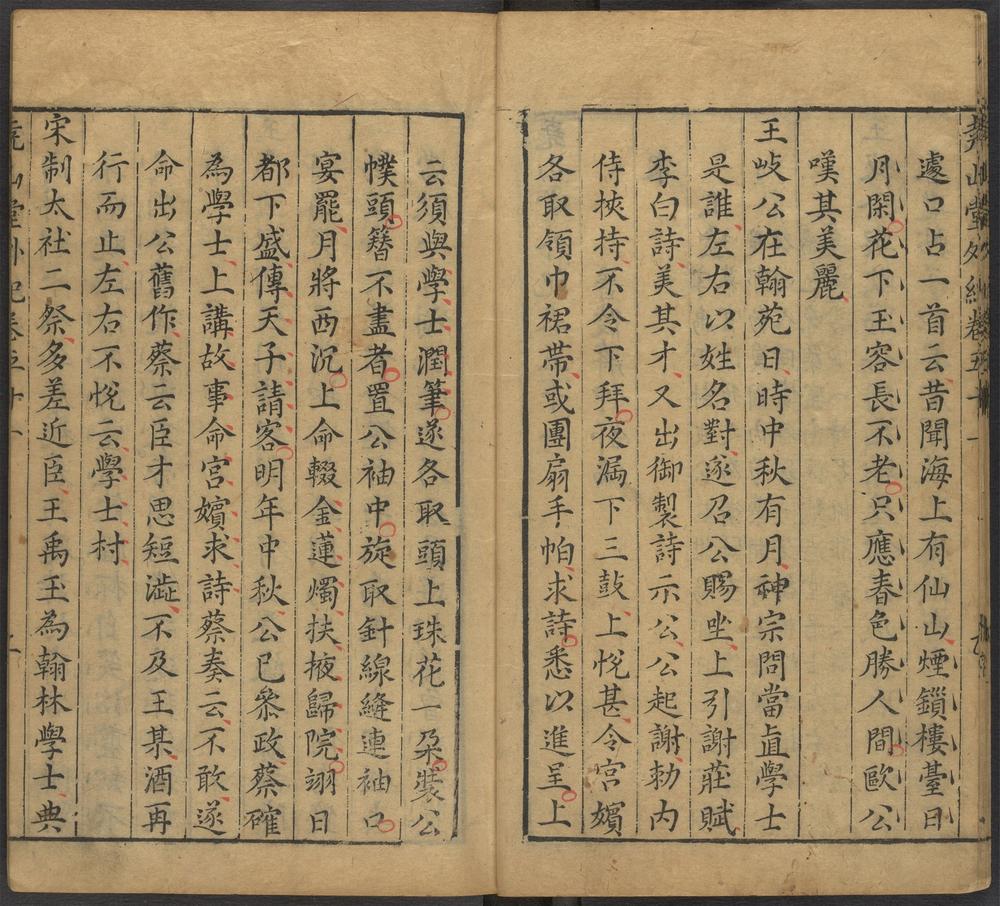 堯山堂外紀卷五十
遽口占一首云昔聞海上有仙山煙鎖樓臺日
月閑花下玉容長不老只應春色勝人間歐公
嘆其美麗
王岐公在翰苑日時中秋有月神宗問當直學士
是誰左右以姓名對遂召公賜坐上引謝莊賦
李白詩美其才又出御製詩示公公起謝勑內
侍挾持不令下拜夜漏下三鼓上悅甚令宮嬪
各取領巾裙帶或團扇手帕求詩悉以進呈上
云須與學士潤筆遂各取頭上珠花一朶裝公
幞頭簪不盡者置公袖中旋取針線縫連袖口
宴罷月將西沉上命輟金蓮燭扶掖歸院翊日
都下盛傳天子請客明年中秋公已叅政蔡確
為學士上講故事命宮嬪求詩蔡奏云不敢遂
命出公舊作蔡云臣才思短澁不及王某酒再
行而止左右不悅云學士村
宋制太社二祭多差近臣王禹玉為翰林學士典
堯山堂外紀卷五十